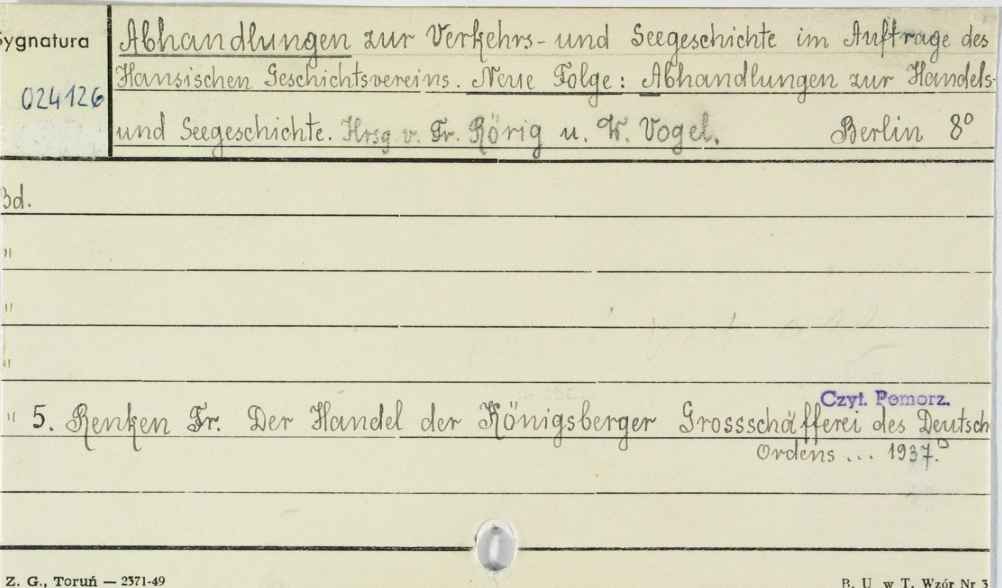 Sygnatura
024126
Abhandlungen zur Verkehrs- und Seegeschichte im Auftrage des
Hansischen Geschichtsvereins. Neue Folge: Abhandlungen zur Handels-
und Seegeschichte. Hrsg v. Fr. Rörig u. W. Vogel. Berlin 8°
Bd.
"
"
"
Czyt. Pomorz.
" 5. Renken Fr. Der Handel der Königsberger Grossschäfferei des Deutsch
Ordens ... 1937.
Z. G., Toruń — 2371-49
B. U. w T. Wzór Nr 3